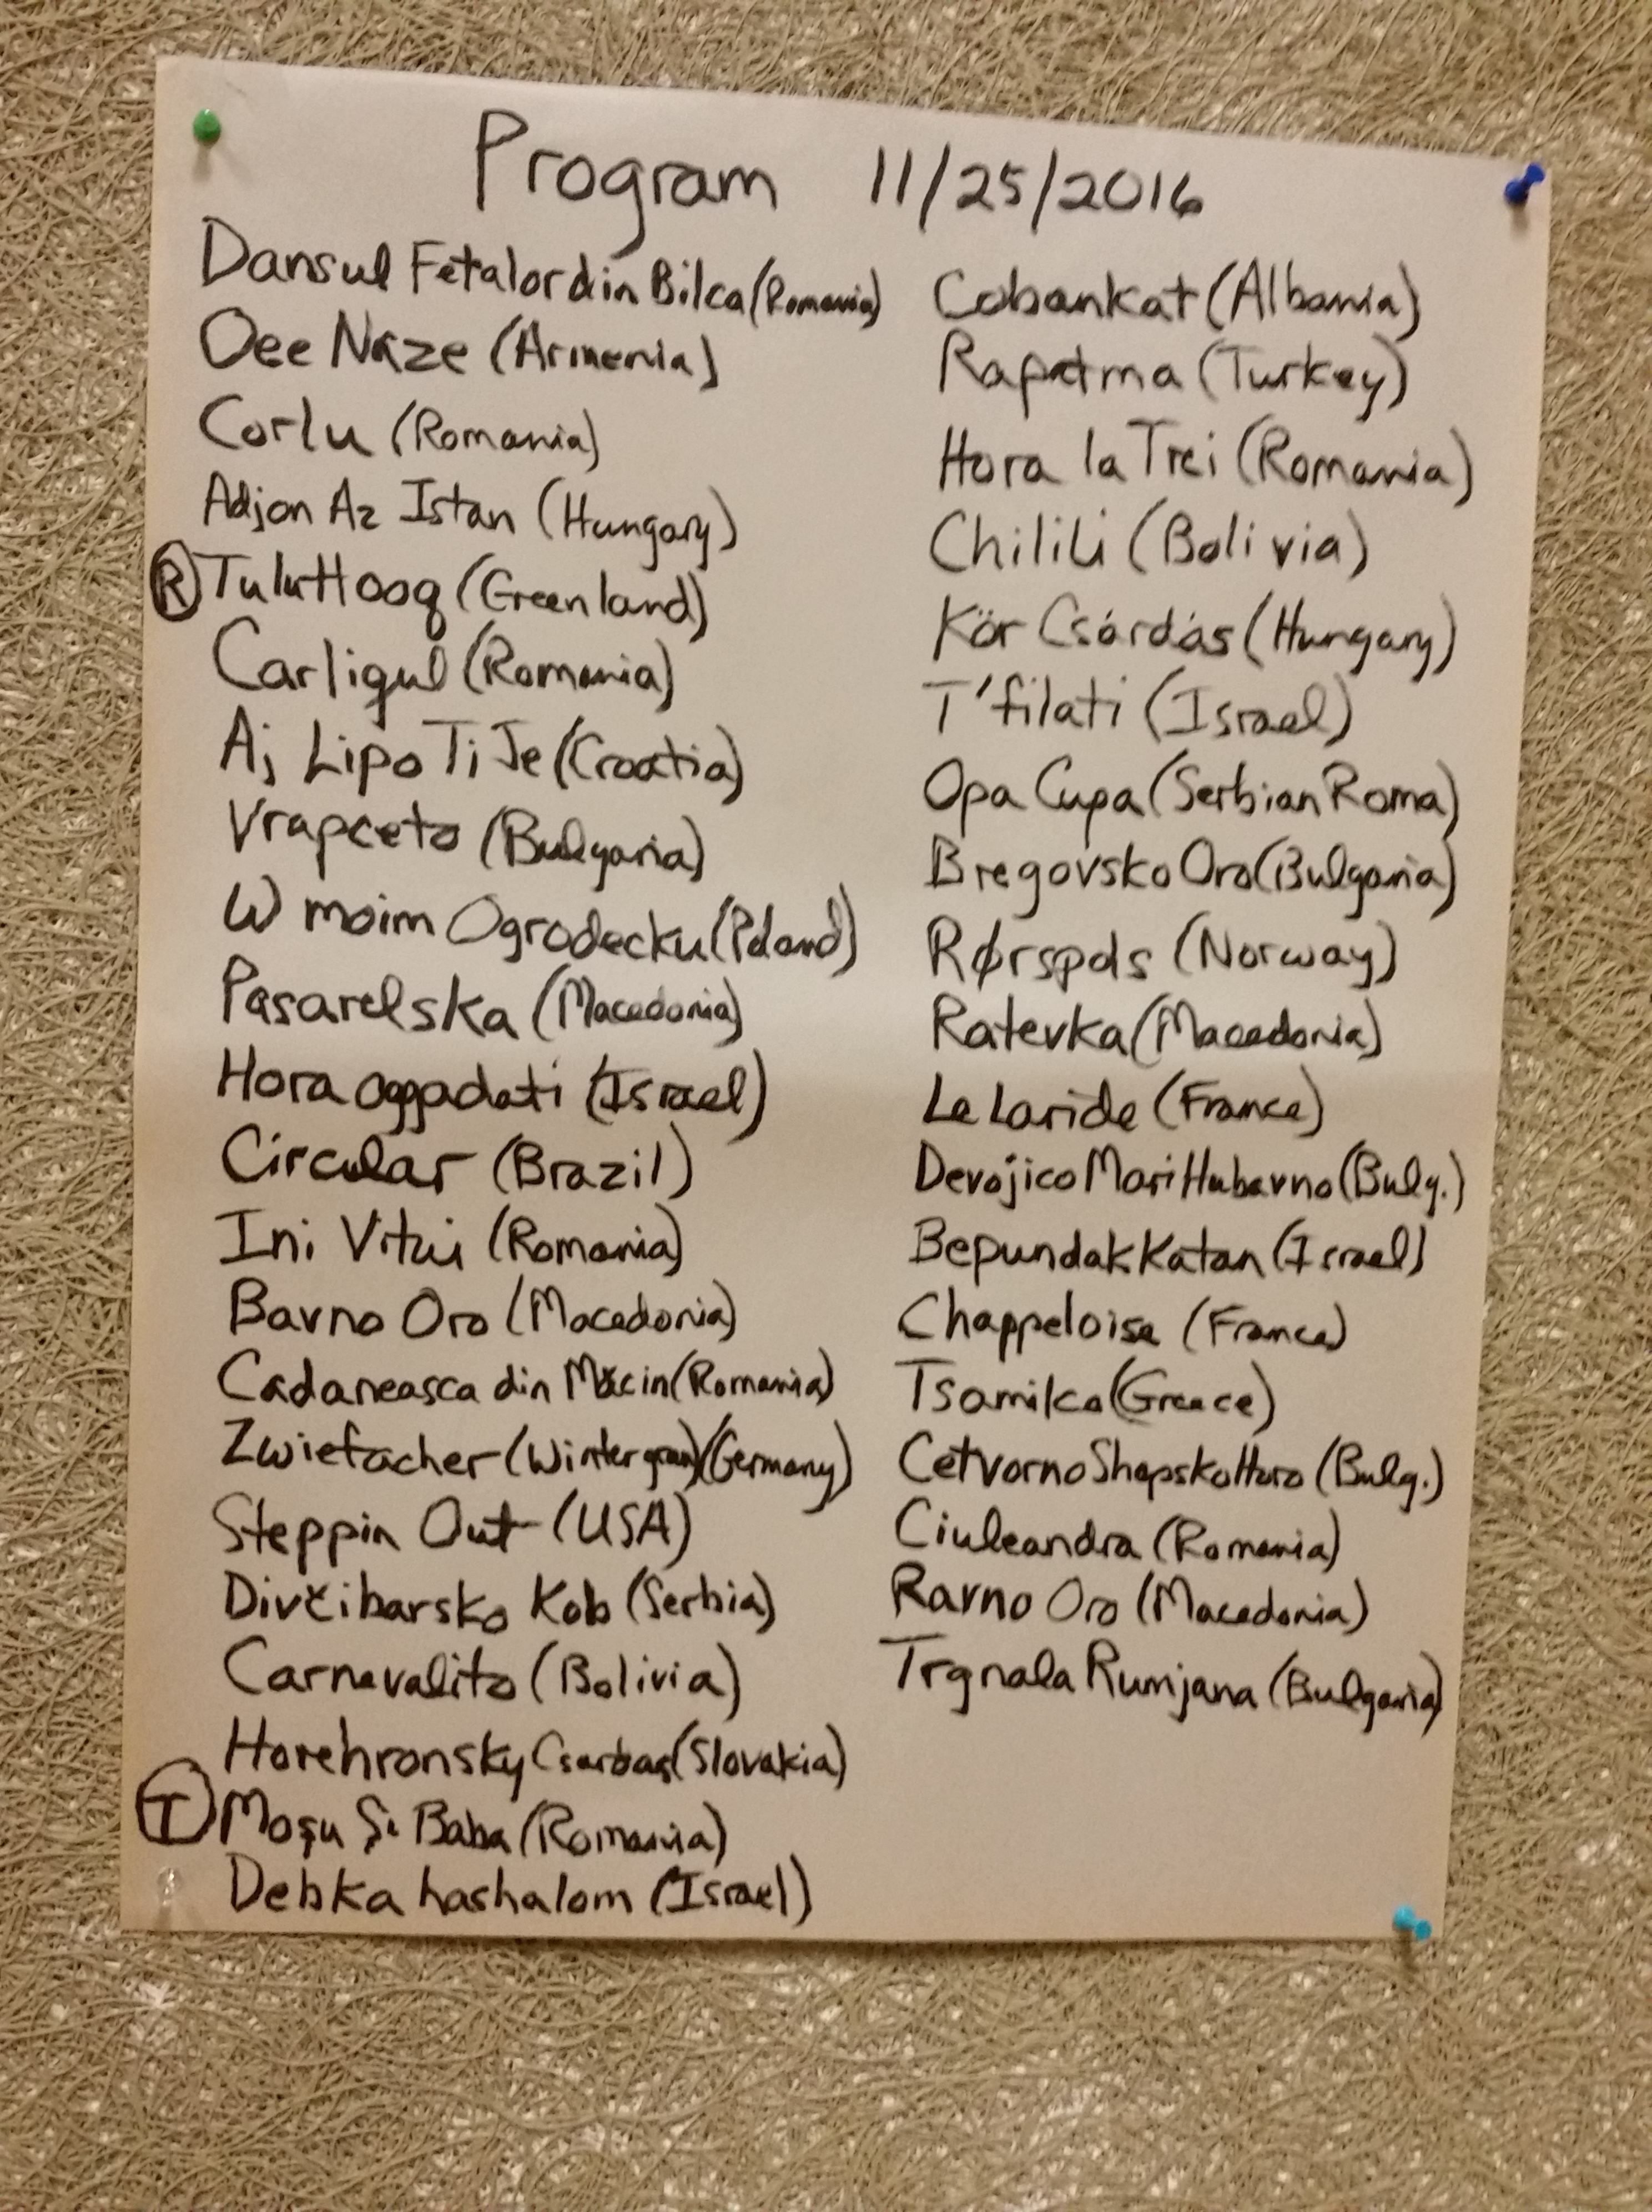 Program 11/25/2016
Dansul Fetalor din Bilca (Romania)
Oee Naze (Armenia)
Corlu (Romania)
Adjon Az Istan (Hungary)
R TuluHooq (Greenland)
Carligul (Romania)
Aj Lipo Ti Je (Croatia)
Vrapceto (Bulgaria)
W moim Ogrodecku (Poland)
Pasarelska (Macedonia)
Hora aggadati (Israel)
Circular (Brazil)
Ini Vitui (Romania)
Bavno Oro (Macedonia)
Cadaneasca din Măcin (Romania)
Zwiefacher (Wintergrün) (Germany)
Steppin Out (USA)
Divčibarsko Kolo (Serbia)
Carnavalito (Bolivia)
Horehronsky Csardas (Slovakia)
T Moşu Şi Baba (Romania)
Debka hashalom (Israel)
Cobankat (Albania)
Rapatma (Turkey)
Hora la Trei (Romania)
Chilili (Bolivia)
Kör Csárdás (Hungary)
T'filati (Israel)
Opa Cupa (Serbian Roma)
Bregovsko Oro (Bulgaria)
Rørspols (Norway)
Ratevka (Macedonia)
Le Laride (France)
Devojico Mari Hubavno (Bulg.)
Bepundak Katan (Israel)
Chappeloise (France)
Tsamiko (Greece)
Cetvorno Shopsko Horo (Bulg.)
Ciuleandra (Romania)
Ravno Oro (Macedonia)
Trgnala Rumjana (Bulgaria)